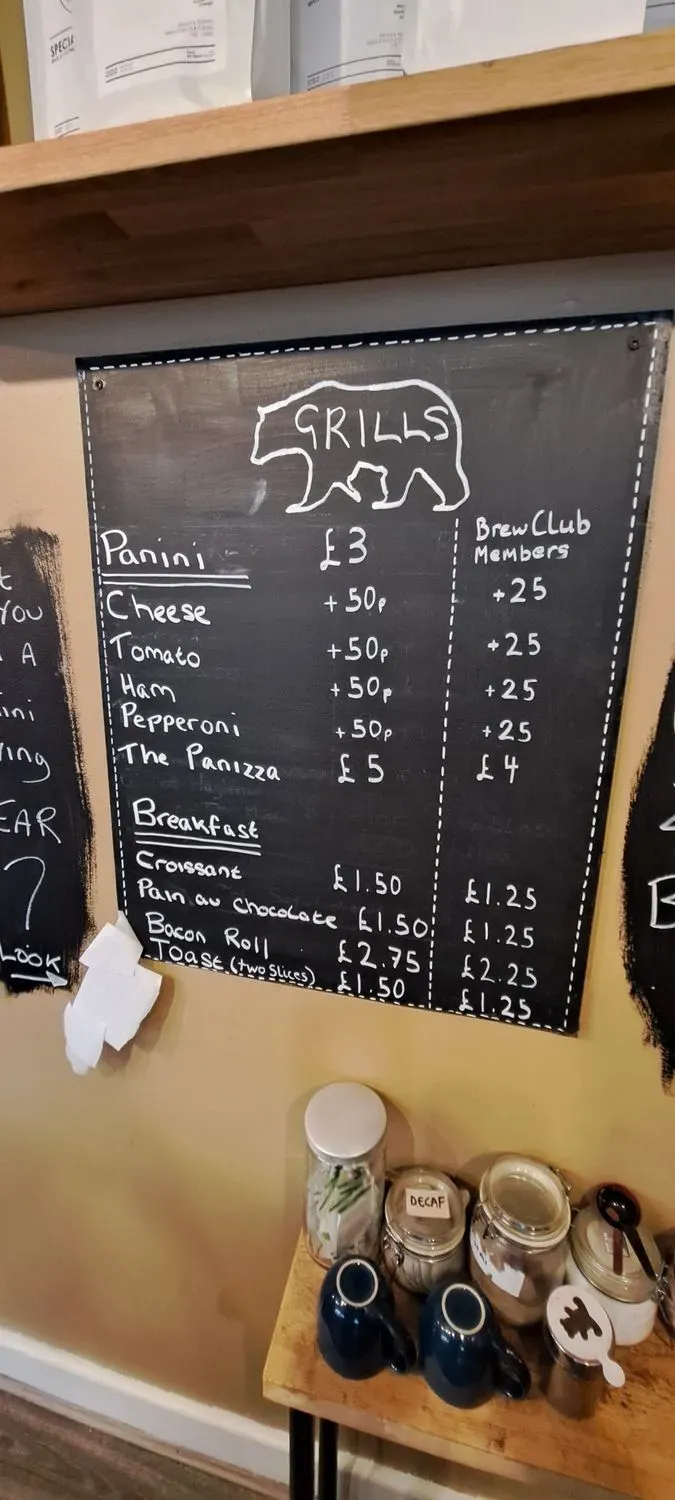 SPECIA
GRILLS
Brew Club
Members
Panini £3
Cheese +50p +25
Tomato +50p +25
Ham +50p +25
Pepperoni +50p +25
The Panizza £5 £4
Breakfast
Croissant £1.50 £1.25
Pain au chocolate £1.50 £1.25
Bacon Roll £2.75 £2.25
Toast (two slices) £1.50 £1.25
YOU
A
ini
ing
EAR
?
LOOK
DECAF